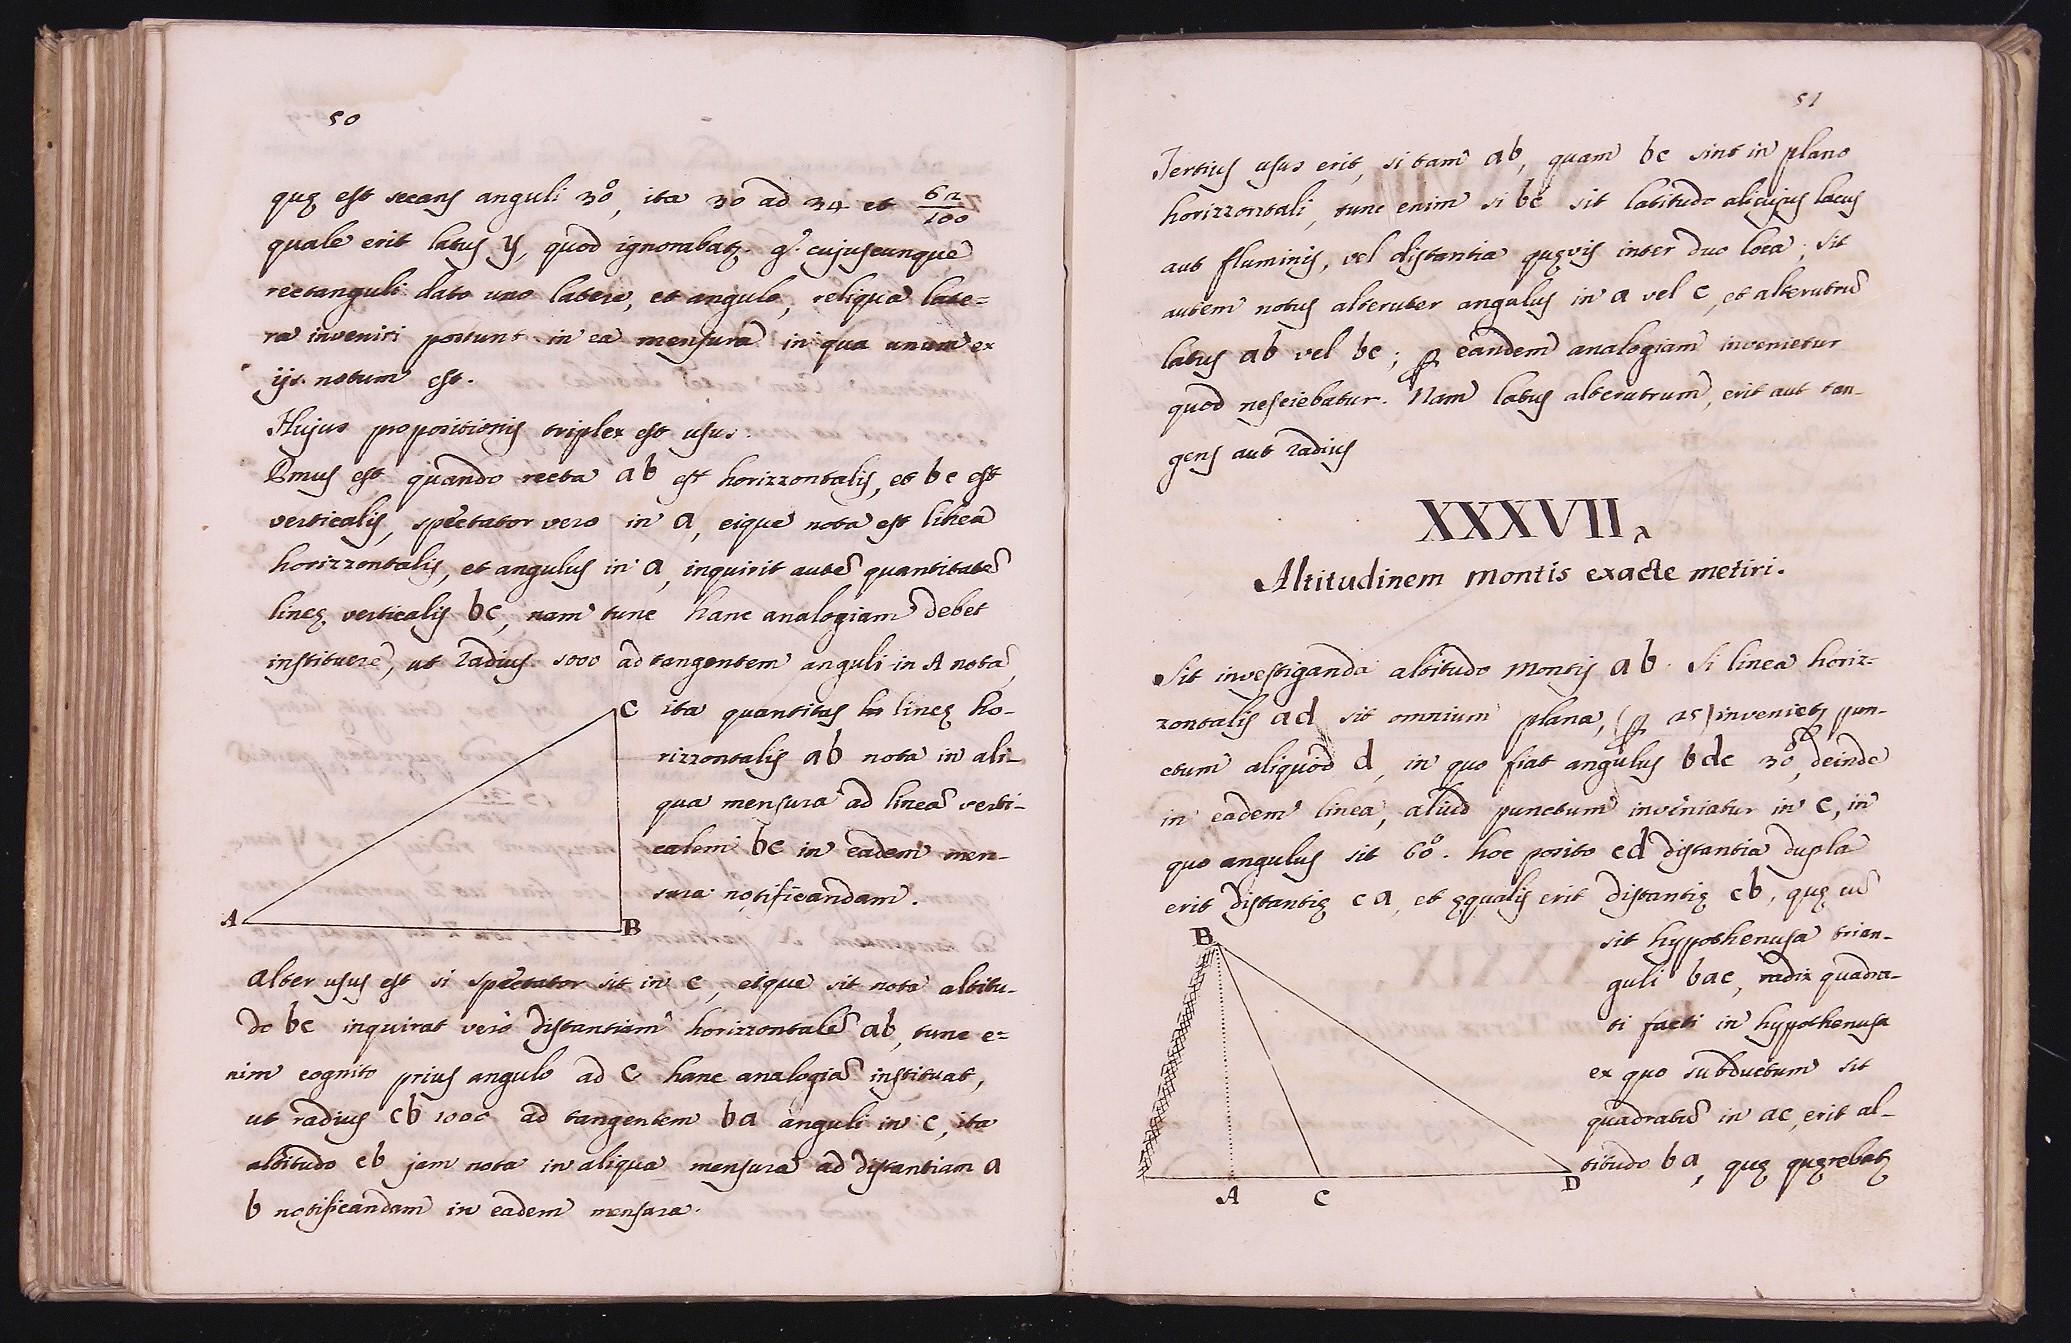 50
quę est secans anguli 30°, ita 30 ad 34 et 62/100
quale erit latus y, quod ignorabatz. gͦ. cujuscunque
rectanguli dato uno latere, et angulo, reliqua late=
ra inveniri possunt in ea mensura in qua unum ex
ijs notum est.
Hujus propositionis triplex est usus.
Pmus est quando recta ab est horizzontalis, et bc est
verticalis, spectator vero in a, eique nota est linea
horizzontalis, et angulus in a, inquirit autẽ quantitatẽ
lineę verticalis bc, nam tunc hanc analogiam debet
instituere, ut radius 1000 ad tangentem anguli in A nota,
ita quantitas lineę ho-
rizzontalis ab nota in ali-
qua mensura ad lineã verti-
calem bc in eadem men-
sura notificandam.
C
A
B
Alter usus est si spectator sit in c, eique sit nota altitu-
do bc inquirat vero distantiam horizzontalẽ ab, tunc e=
nim cognito prius angulo ad c hanc analogiã instituat,
ut radius cb 1000 ad tangentem ba anguli in c, ita
altitudo cb jam nota in aliqua mensura ad distantiam a
b notificandam in eadem mensura.
51
Tertius usus erit, si tam ab, quam bc sint in plano
horizzontali, tunc enim si bc sit latitudo alicujus lacus
aut fluminis, vel distantia quęvis inter duo loca; sit
autem notus alteruter angulus in a vel c, et alterutrũ
latus ab vel bc; ꝑ eandem analogiam invenietur
quod nesciebatur. Nam latus alterutrum, erit aut tan-
gens aut radius
XXXVII
Altitudinem montis exacte metiri.
Sit investiganda altitudo Montis ab. Si linea horiz=
zontalis ad sit omnium plana, (ꝑ 25) invenietz pun-
ctum aliquod d, in quo fiat angulus bdc 30°, deinde
in eadem linea, aliud punctum inveniatur in c, in
quo angulus sit 60°. hoc posito cd distantia dupla
erit distantię ca, et ęqualis erit distantię cb, quę cũ
sit hypothenusa trian-
guli bac, radix quadra-
ti facti in hypothenusa
ex quo subductum sit
quadratũ in ac, erit al-
titudo ba, quę quęrebatz
B
A
C
D